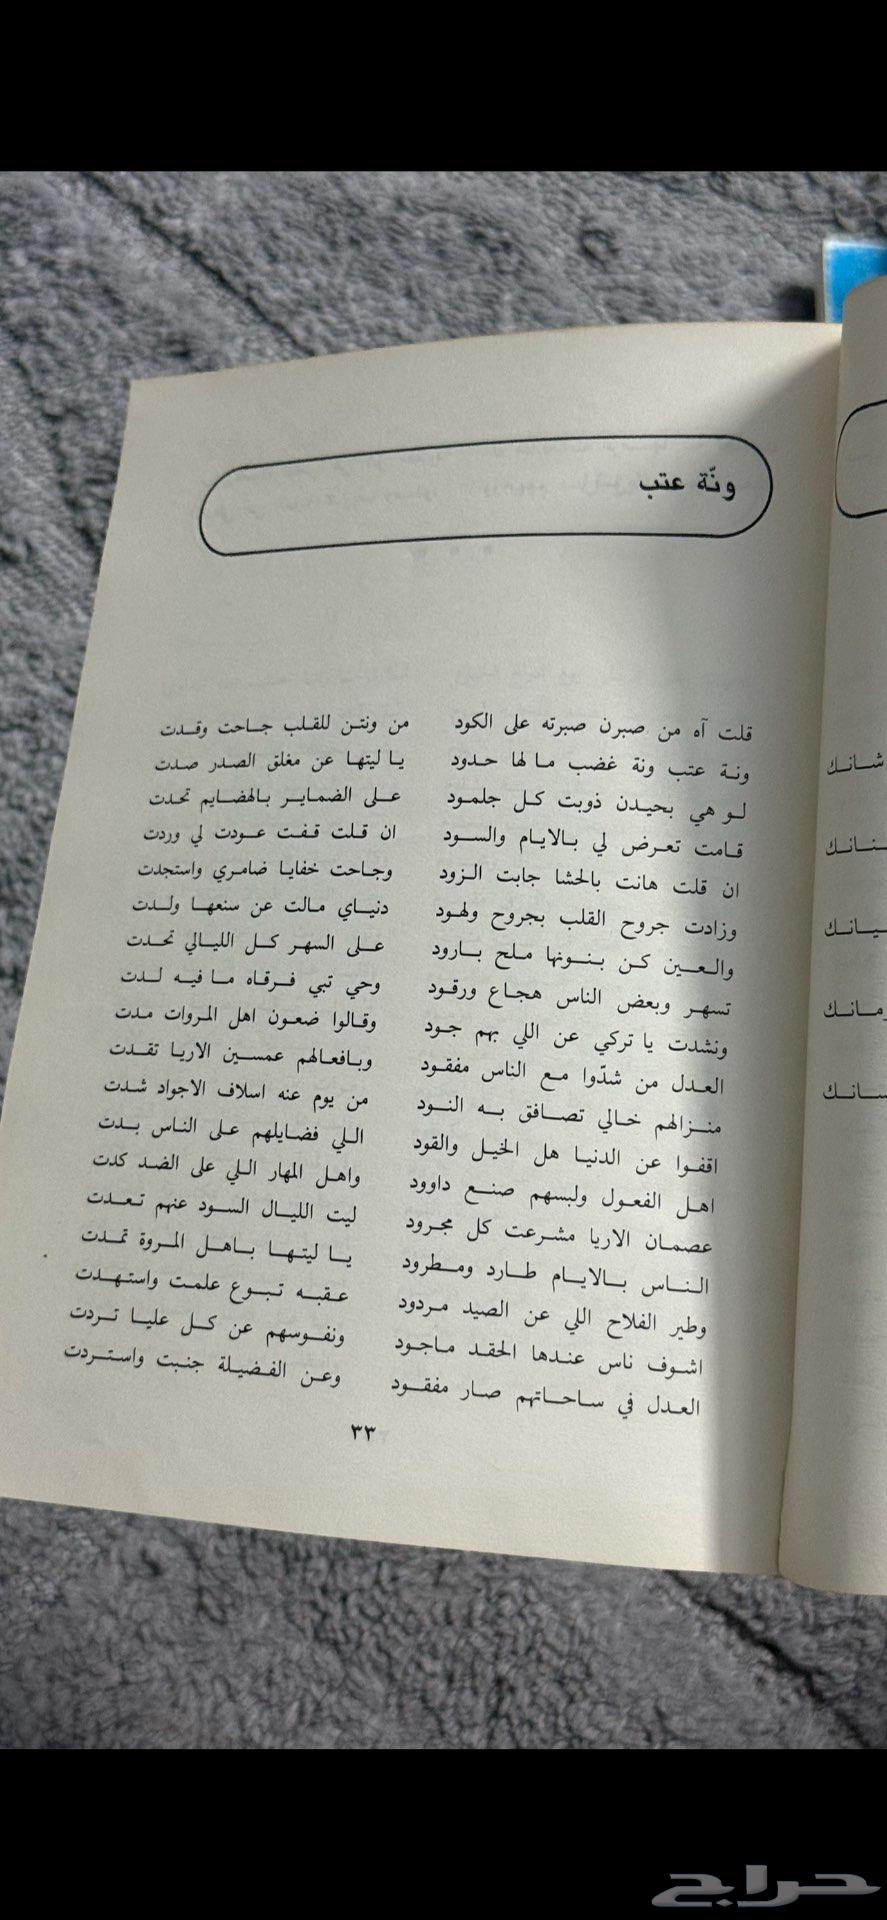 ونّة عتب
قلت آه من صبرن صبرته على الكود من ونتن للقلب جاحت وقدت
ونة عتب ونة غضب ما لها حدود يا ليتها عن مغلق الصدر صدت
لو هي بحيدن ذوبت كل جلمود على الضماير بالهضايم تحدت
قامت تعرض لي بالايام والسود ان قلت قفت عودت لي وردت
ان قلت هانت بالحشا جابت الزود وجاحت خفايا ضامري واستجدت
وزادت جروح القلب بجروح ولهود دنياي مالت عن سنعها ولدت
والعين كن بنونها ملح بارود على السهر كل الليالي تحدت
تسهر وبعض الناس هجاع ورقود وحي تبي فرقاه ما فيه لدت
ونشدت يا تركي عن اللي بهم جود وقالوا ضعون اهل المروات مدت
العدل من شدّوا مع الناس مفقود وبافعالهم عمسين الاريا تقدت
منزالهم خالي تصافق به النود من يوم عنه اسلاف الاجواد شدت
اقفوا عن الدنيا هل الخيل والقود اللي فضايلهم على الناس بدت
اهل الفعول ولبسهم صنع داوود واهل المهار اللي على الضد كدت
عصمان الاريا مشرعت كل مجرود ليت الليال السود عنهم تعدت
الناس بالايام طارد ومطرود يا ليتها باهل المروة تمدت
وطير الفلاح اللي عن الصيد مردود عقبه تبوع علمت واستهدت
اشوف ناس عندها الحقد ماجود ونفوسهم عن كل عليا تردت
العدل في ساحاتهم صار مفقود وعن الفضيلة جنبت واستردت
٣٣
شانك
نانك
يانك
مانك
سانك
حراج